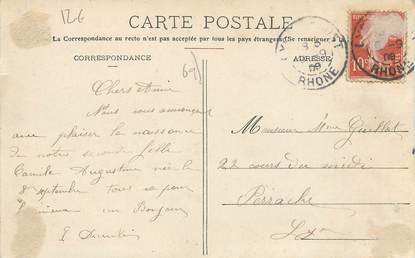 12 6
CARTE POSTALE
La Correspondance au recto n'est pas acceptée par tous les pays étrangers (Se renseigner
CORRESPONDANCE
ADRESSE
69)
RHONE
RHONE
10
Chers Amis
Nous vous annonçons
avec plaisir la naissance
de notre seconde fille
Camille Augustine née le
8 septembre tous va pour
le mieux un Bonjour
Monsieur Mme Guillot
22 cours du midi
Perrache
Lyon